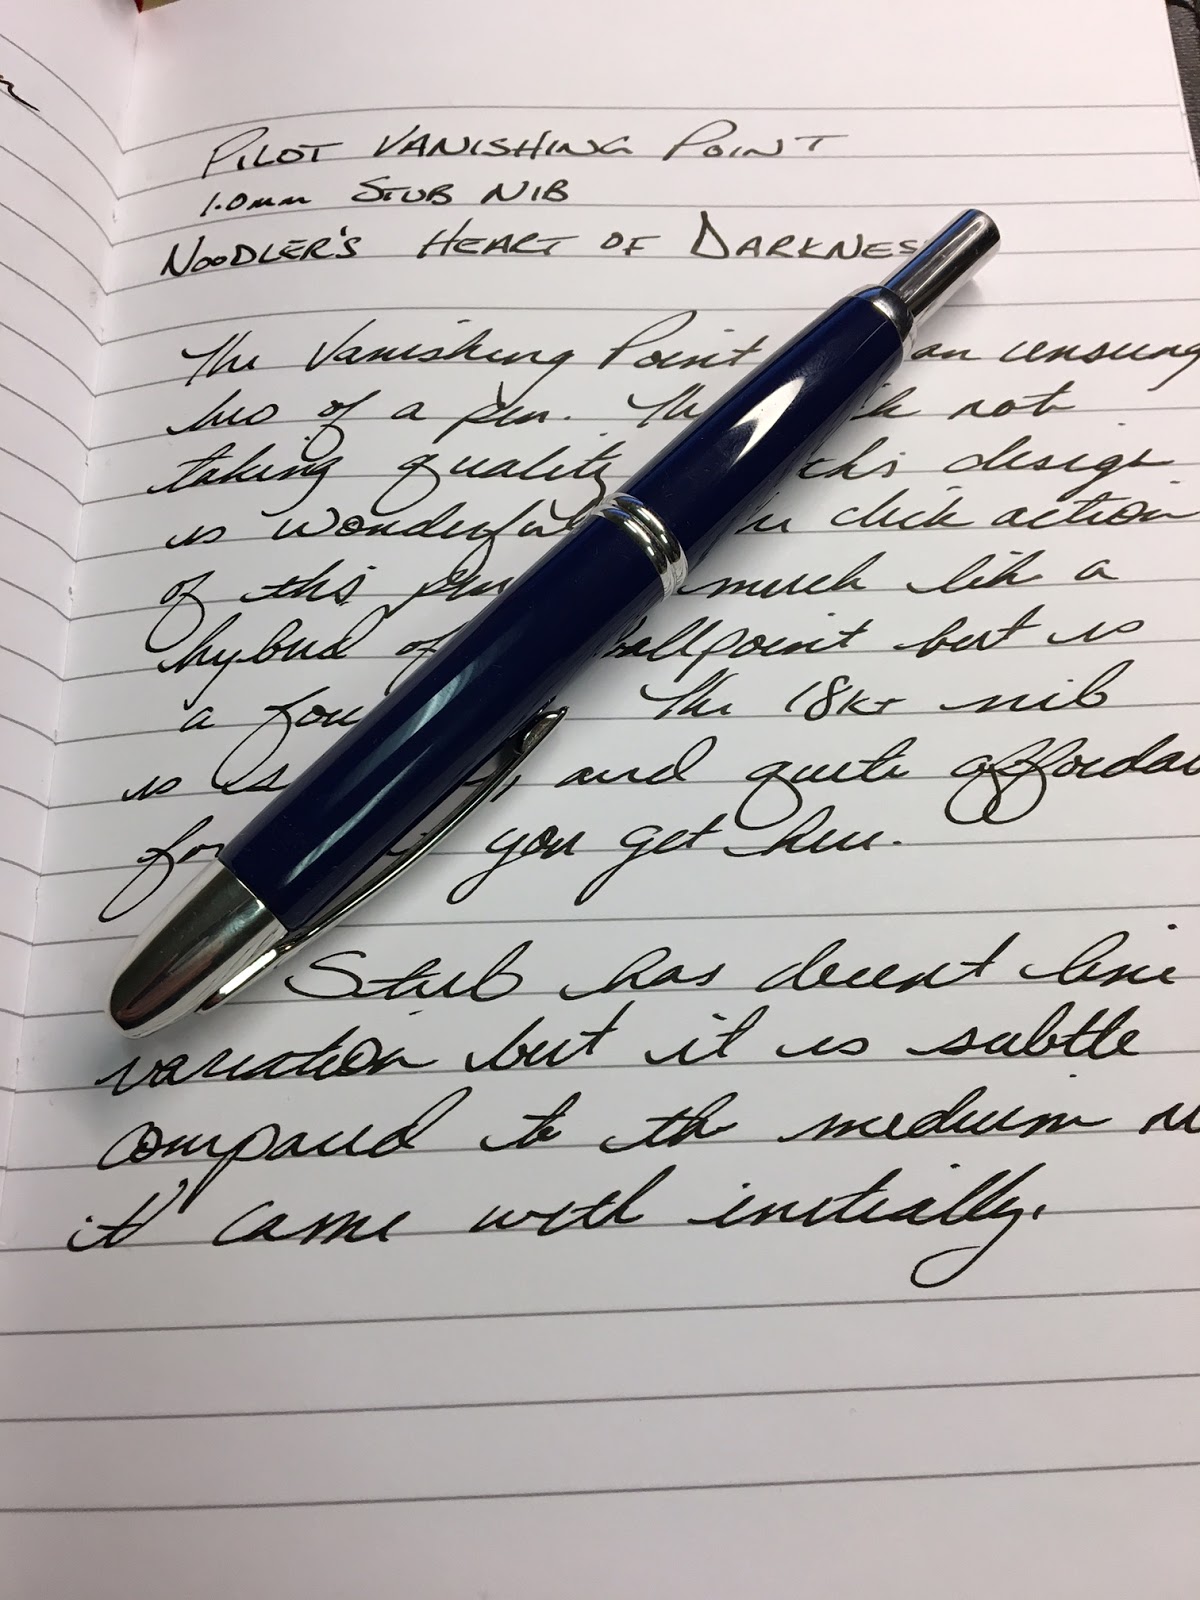 PILOT VANISHING POINT
1.0mm STUB NIB
NOODLER'S HEART OF DARKNES
The Vanishing Point an unsung
hero of a pen. The not
taking quality this design
is wonderful click action
of this pen much like a
hybrid of ballpoint but is
a fou The 18kt nib
is , and quite affordab
for you get here.
Stub has decent line
variation but it is subtle
compared to the medium ni
it came with initially.